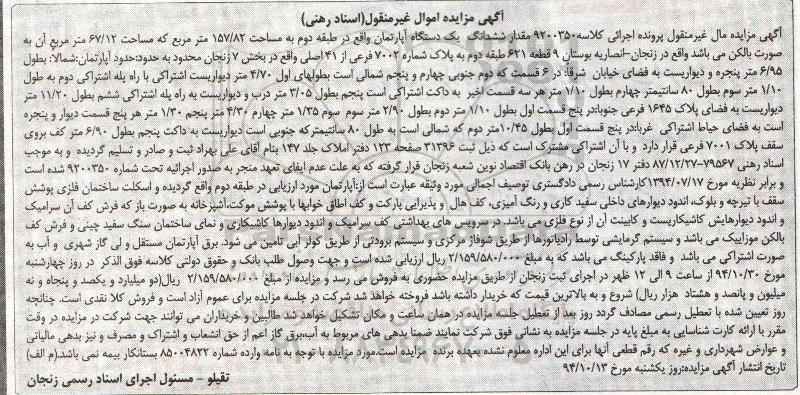 آگهی مزایده اموال غیرمنقول(اسناد رهنی)
آگهی مزایده مال غیرمنقول پرونده اجرائی کلاسه۹۲۰۰۳۵۰ مقدار ششدانگ یک دستگاه آپارتمان واقع در طبقه دوم به مساحت ۱۵۷/۸۲ متر مربع که مساحت ۶۷/۱۲ متر مربع آن به
صورت بالکن می باشد واقع در زنجان-انصاریه بوستان ۹ قطعه ۶۲۱ طبقه دوم به پلاک شماره ۷۰۰۲ فرعی از ۴۱ اصلی واقع در بخش ۷ زنجان محدود به حدود:حدود آپارتمان:شمالا: بطول
۶/۹۵ متر پنجره و دیواریست به فضای خیابان شرقا: در ۶ قسمت که دوم جنوبی چهارم و پنجم شمالی است بطولهای اول ۴/۷۰ متر دیواریست اشتراکی با راه پله اشتراکی دوم به طول
۱/۱۰ متر سوم بطول ۸۰ سانتیمتر چهارم بطول ۱/۱۰ متر هر سه قسمت اخیر به داکت اشتراکی است پنجم بطول ۳/۰۵ متر درب و دیواریست به راه پله اشتراکی ششم بطول ۱۱/۲۰ متر
دیواریست به فضای پلاک ۱۶۴۵ فرعی جنوبا:در پنج قسمت اول بطول ۱/۱۰ متر دوم بطول ۲/۹۰ متر سوم سوم ۱/۳۵ متر چهارم ۴/۳۰ متر پنجم ۱/۳۰ متر هر پنج قسمت دیوار و پنجره
است به فضای حیاط اشتراکی غربا:در پنج قسمت اول بطول ۱۰/۴۵متر دوم که شمالی است به طول ۸۰ سانتیمترکه جنوبی است دیواریست به داکت پنجم بطول ۶/۹۰ متر کف بروی
سقف پلاک ۷۰۰۱ فرعی قرار دارد و با آن اشتراکی مشترک است که ذیل ثبت ۳۱۳۹۶ صفحه ۱۲۳ دفتر املاک جلد ۱۴۷ بنام آقای علی بهراد ثبت و صادر و تسلیم گردیده و به موجب
اسناد رهنی ۷۹۵۶۷-۸۷/۱۲/۲۷ دفتر ۱۷ زنجان در رهن بانک اقتصاد نوین شعبه زنجان قرار گرفته که به علت عدم ایفای تعهد منجر به صدور اجرائیه تحت شماره ۹۲۰۰۳۵۰ شده است
و برابر نظریه مورخ ۱۳۹۴/۰۷/۱۷کارشناس رسمی دادگستری توصیف اجمالی مورد وثیقه عبارت است از:آپارتمان مورد ارزیابی در طبقه دوم واقع گردیده و اسکلت ساختمان فلزی پوشش
سقف با تیرچه و بلوک، اندود دیوارهای داخلی سفید کاری و رنگ آمیزی، کف هال و پذیرایی پارکت و کف اطاق خوابها با پوشش موکت،آشپزخانه به صورت باز که فرش کف آن سرامیک
و اندود دیوارهایش کاشیکاریست و کابینت آن از نوع فلزی می باشد. در سرویس های بهداشتی کف سرامیک و اندود دیوارها کاشیکاری و نمای ساختمان سنگ سفید چینی و فرش کف
بالکن موزاییک می باشد و سیستم گرمایشی توسط رادیاتورها از طریق شوفاژ مرکزی و سیستم برودتی از طریق کولر آبی تامین می شود. برق آپارتمان مستقل و لی گاز شهری و آب به
صورت اشتراکی می باشد و فاقد پارکینگ می باشد که به مبلغ ۲/۱۵۹/۵۸۰/۰۰۰ ریال ارزیابی شده است و جهت وصول طلب بانک و حقوق دولتی کلاسه فوق الذکر در روز چهارشنبه
مورخ ۹۴/۱۰/۳۰ از ساعت ۹ الی ۱۲ ظهر در اجرای ثبت زنجان از طریق مزایده حضوری به فروش می رسد و مزایده از مبلغ ۲/۱۵۹/۵۸۰/۰۰۰ ریال(دو میلیارد و یکصد و پنجاه و نه
میلیون و پانصد و هشتاد هزار ریال) شروع و به بالاترین قیمت که خریدار داشته باشد فروخته خواهد شد شرکت در جلسه مزایده برای عموم آزاد است و فروش کلا نقدی است. چنانچه
روز تعیین شده با تعطیل رسمی مصادف گردد روز بعد از تعطیل جلسه مزایده در همان ساعت و مکان تشکیل خواهد شد طالبین و خریداران می توانند جهت شرکت در مزایده در وقت
مقرر با ارائه کارت شناسایی به مبلغ پایه در جلسه مزایده به نشانی فوق شرکت نمایند ضمنا بدهی های مربوط به آب،برق گاز اعم از حق انشعاب و اشتراک و مصرف و نیز بدهی مالیاتی
و عوارض شهرداری و غیره که رقم قطعی آنها برای این اداره معلوم نشده بعهده برنده مزایده است.مورد مزایده با توجه به نامه وارده شماره ۸۵۰۰۴۸۲۲ بستانکار بیمه نمی باشد.(م الف)
تاریخ انتشار آگهی مزایده:روز یکشنبه مورخ ۹۴/۱۰/۱۳
تقیلو - مسئول اجرای اسناد رسمی زنجان